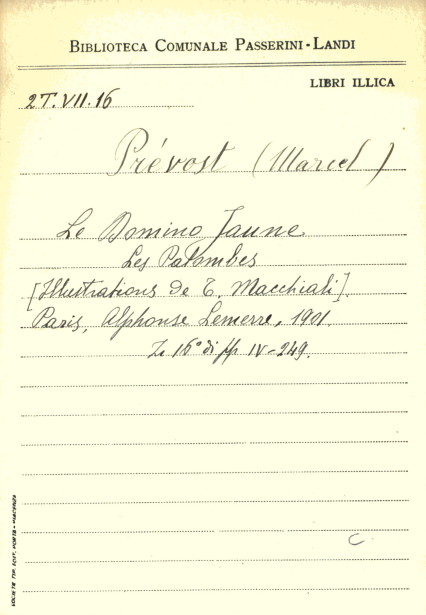 BIBLIOTECA COMUNALE PASSERINI-LANDI
LIBRI ILLICA
2T.VII.16
Prévost (Marcel)
Le Domino Jaune
Les Palombes
[Illustrations de T. Macchiati].
Paris, Alphonse Lemerre, 1901.
16° di pp IV-249.
C